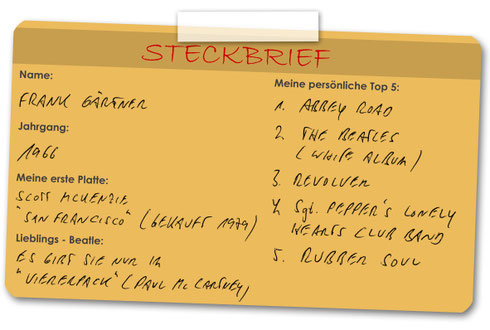 STECKBRIEF
Name:
FRANK GÄRTNER
Jahrgang:
1966
Meine erste Platte:
SCOTT MCKENZIE
"SAN FRANCISCO" (GEKAUFT 1979)
Lieblings - Beatle:
ES GIBT SIE NUR IM
"VIERERPACK" (PAUL MC CARTNEY)
Meine persönliche Top 5:
1. ABBEY ROAD
2. THE BEATLES
(WHITE ALBUM)
3. REVOLVER
4. Sgt. PEPPER'S LONELY
HEARTS CLUB BAND
5. RUBBER SOUL